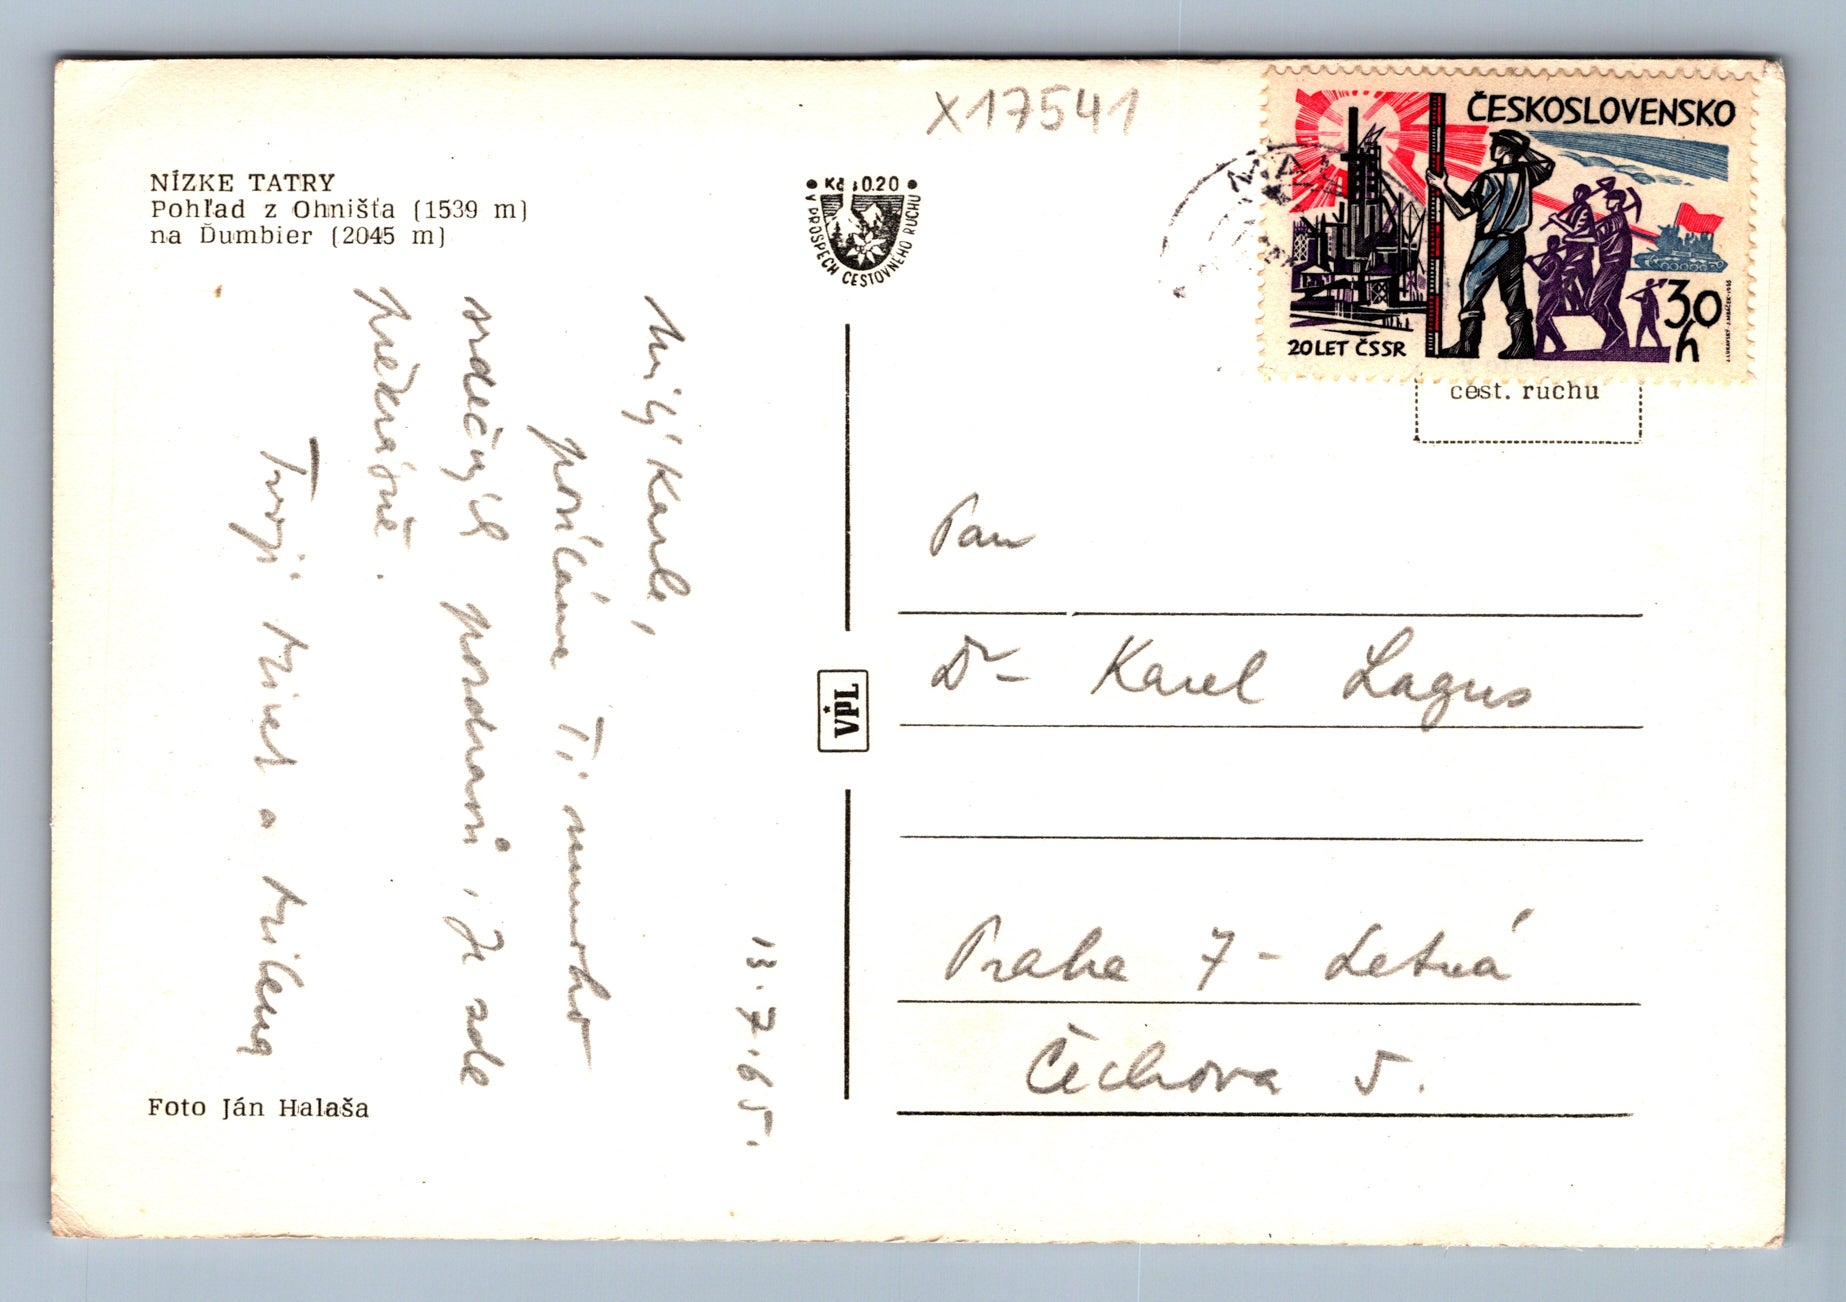 X17541
NÍZKE TATRY
Pohľad z Ohnišťa (1539 m)
na Ďumbier (2045 m)
Kčs 0.20
V PROSPECH CESTOVNÉHO RUCHU
ČESKOSLOVENSKO
20 LET ČSSR
30 h
cest. ruchu
13.7.65.
Milý Karle,
posíláme Ti mnoho
srdečných pozdravů, je zde
překrásně.
Tvoji Mirek a Milena
VPL
Pan
Dr Karel Lagus
Praha 7 - Letná
Čechova 5.
Foto Ján Halaša